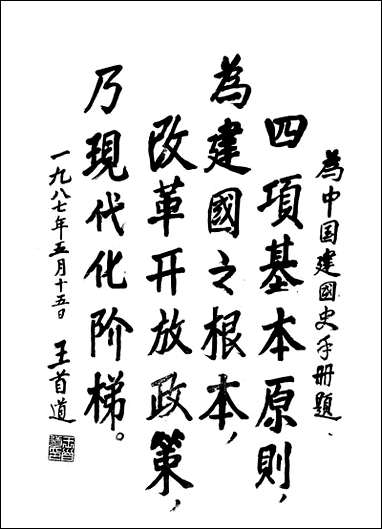 為中国建國史手册題、
四項基本原則，
為建國之根本，
改革开放政策，
乃現代化阶梯。
一九八七年五月十五日 王首道